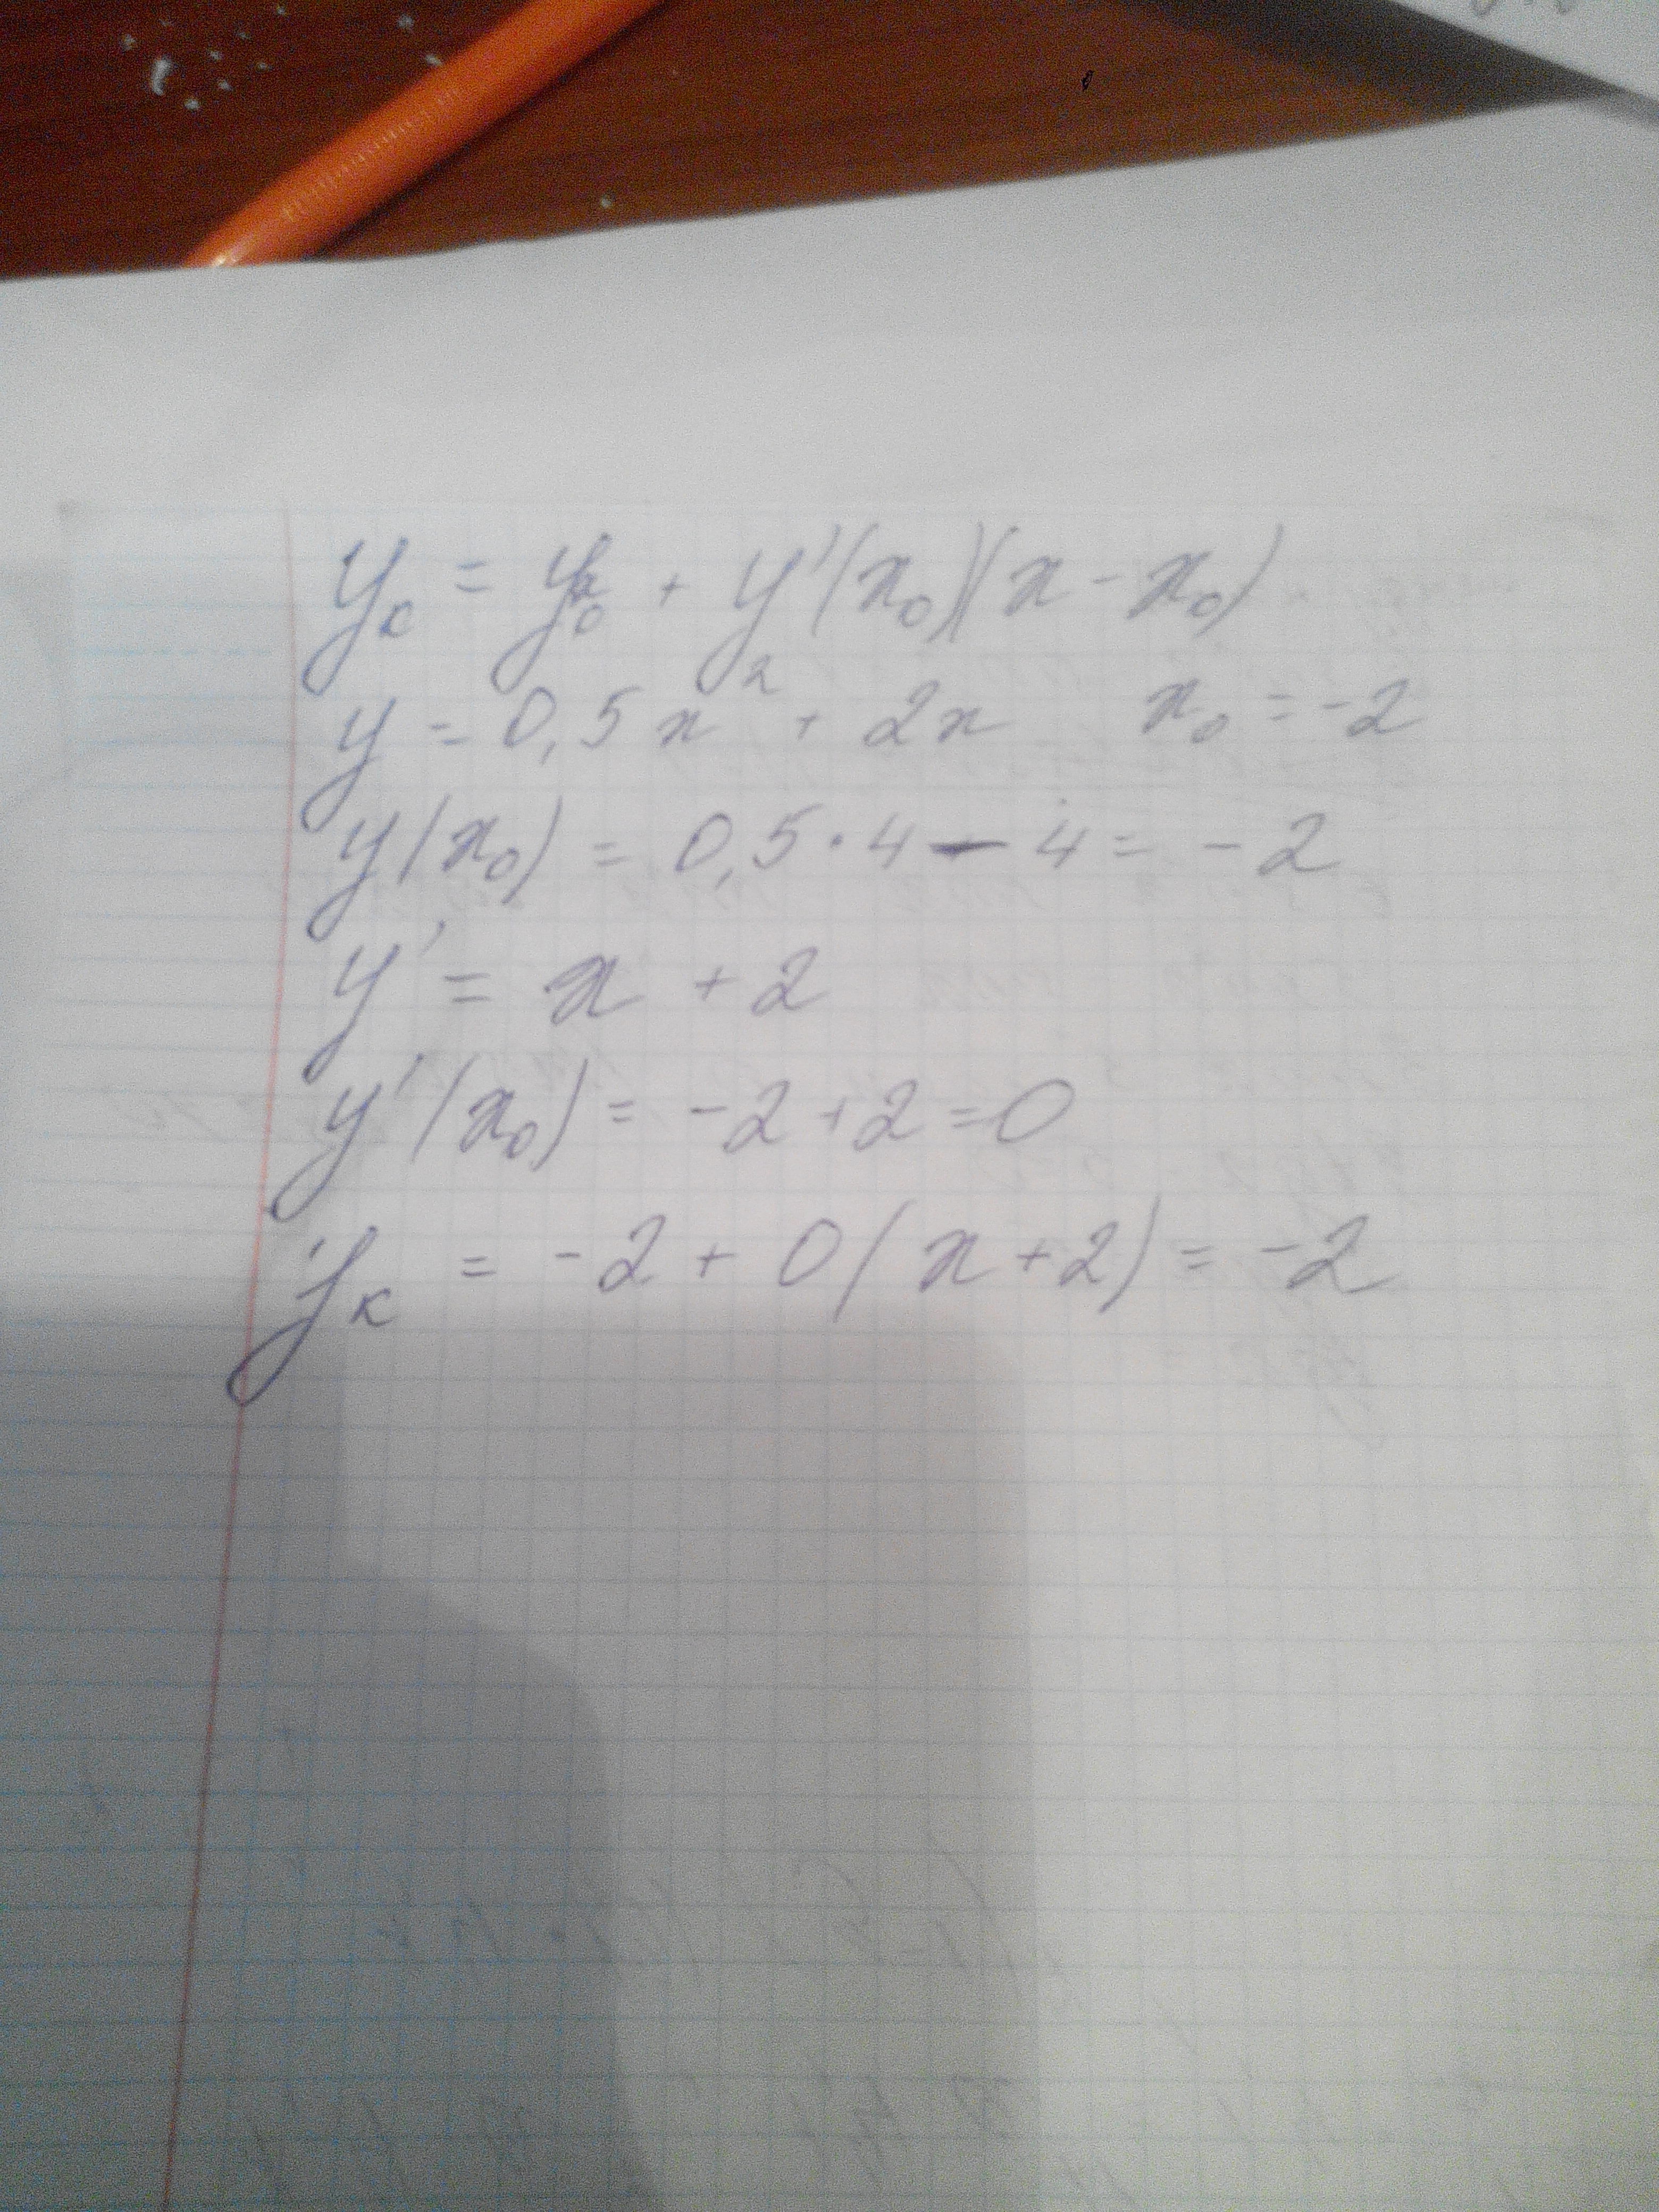 yк = y0 + y'(x0)(x - x0)
y = 0,5x² + 2x x0 = -2
y(x0) = 0,5·4 - 4 = -2
y' = x + 2
y'(x0) = -2 + 2 = 0
yк = -2 + 0(x + 2) = -2